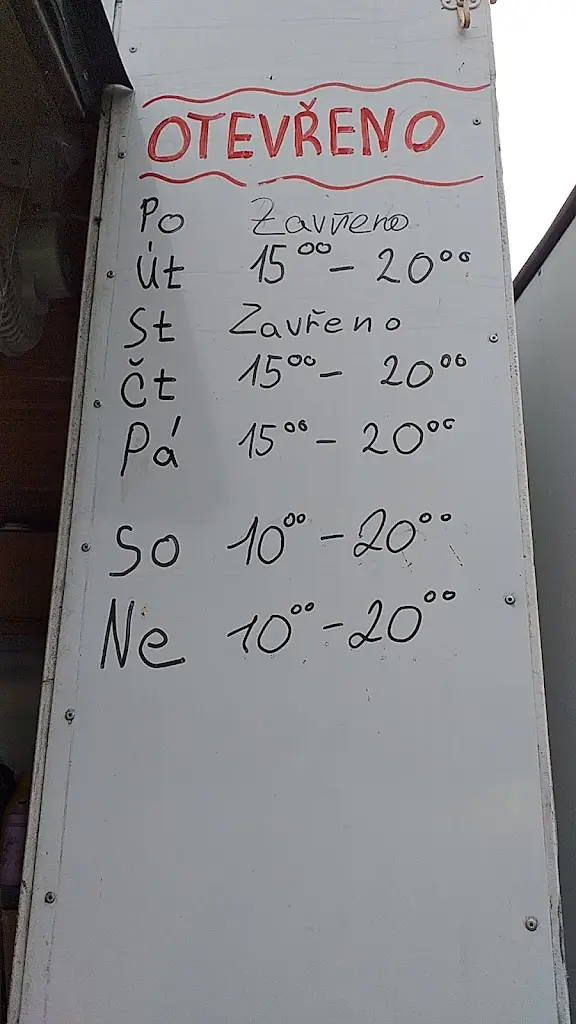 OTEVŘENO
Po Zavřeno
Út 15⁰⁰ - 20⁰⁰
St Zavřeno
Čt 15⁰⁰ - 20⁰⁰
Pá 15⁰⁰ - 20⁰⁰
So 10⁰⁰ - 20⁰⁰
Ne 10⁰⁰ - 20⁰⁰